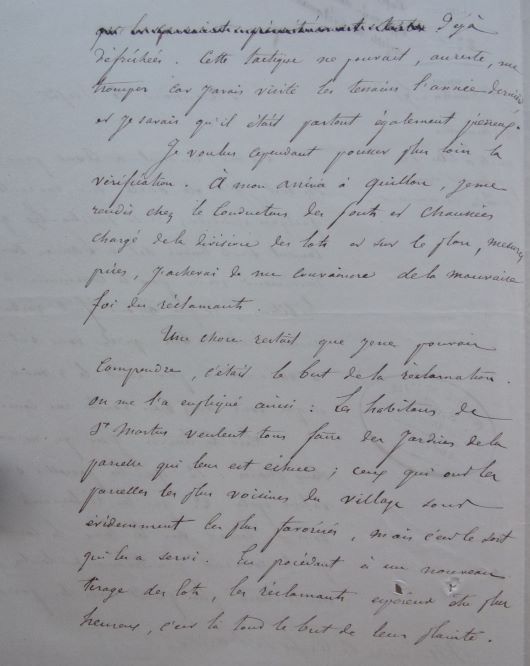 déjà
défrichées. Cette tactique ne pouvait, au reste, me
tromper car j'avais visité les terrains l'année dernière
et je savais qu'il était partout également pierreux.
Je voulus cependant pousser plus loin la
vérification. À mon arrivée à Guillon, je me
rendis chez le Conducteur des ponts et chaussées
chargé de la division des lots et sur le plan, mesures
prises, j'achevai de me convaincre de la mauvaise
foi des réclamants.
Une chose restait que je ne pouvais
comprendre, c'était le but de la réclamation.
on me l'a expliqué ainsi : Les habitans de
St Martin veulent tous faire des jardins de la
parcelle qui leur est échue ; ceux qui ont les
parcelles les plus voisines du village sont
évidemment les plus favorisés, mais c'est le sort
qui les a servi. En procédant à un nouveau
tirage des lots, les réclamants espèrent être plus
heureux, c'est là tout le but de leur plainte.